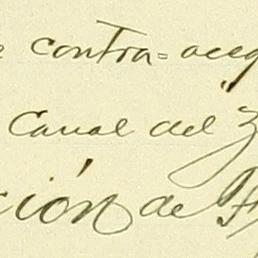 contra=aceq
Canal del
ción de